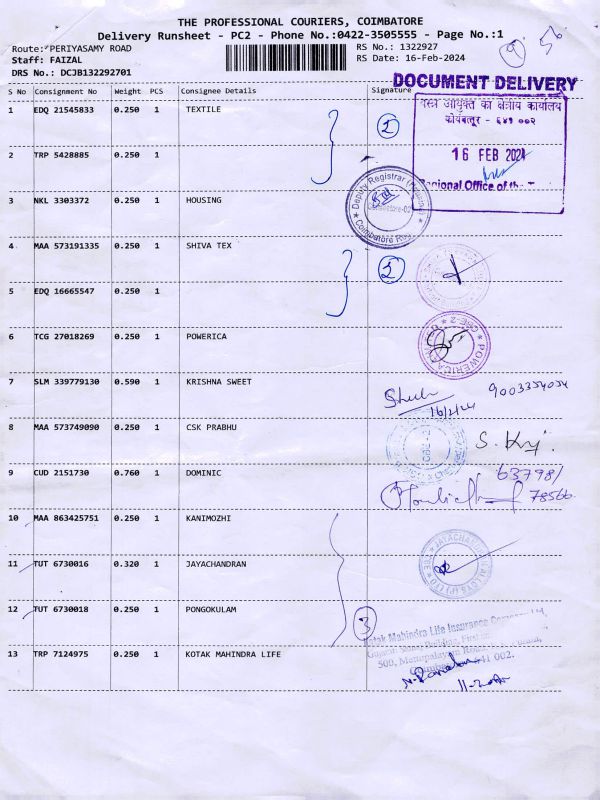 THE PROFESSIONAL COURIERS, COIMBATORE
Delivery Runsheet - PC2 - Phone No.:0422-3505555 - Page No.:1
Route: PERIYASAMY ROAD
RS No.: 1322927
Staff: FAIZAL
RS Date: 16-Feb-2024
DRS No.: DCJB132292701
DOCUMENT DELIVERY
S No Consignment No Weight PCS Consignee Details Signature
वस्त्र आयुक्त का क्षेत्रीय कार्यालय
कोयंबतूर - ६४१ ००२
16 FEB 2024
Regional Office of the
1 EDQ 21545833 0.250 1 TEXTILE
2
2 TRP 5428885 0.250 1
3 NKL 3303372 0.250 1 HOUSING
Deputy Registrar (Housing)
Coimbatore-02
Coimbatore Reg
4 MAA 573191335 0.250 1 SHIVA TEX
2
5 EDQ 16665547 0.250 1
6 TCG 27018269 0.250 1 POWERICA
POWERICA
CBE-2
7 SLM 339779130 0.590 1 KRISHNA SWEET
9003354054
16/2/24
8 MAA 573749090 0.250 1 CSK PRABHU
9 CUD 2151730 0.760 1 DOMINIC
63798/
78566
10 MAA 863425751 0.250 1 KANIMOZHI
11 TUT 6730016 0.320 1 JAYACHANDRAN
12 TUT 6730018 0.250 1 PONGOKULAM
3
Kotak Mahindra Life Insurance Company Ltd,
500, Mettupalayam Road
641 002.
13 TRP 7124975 0.250 1 KOTAK MAHINDRA LIFE